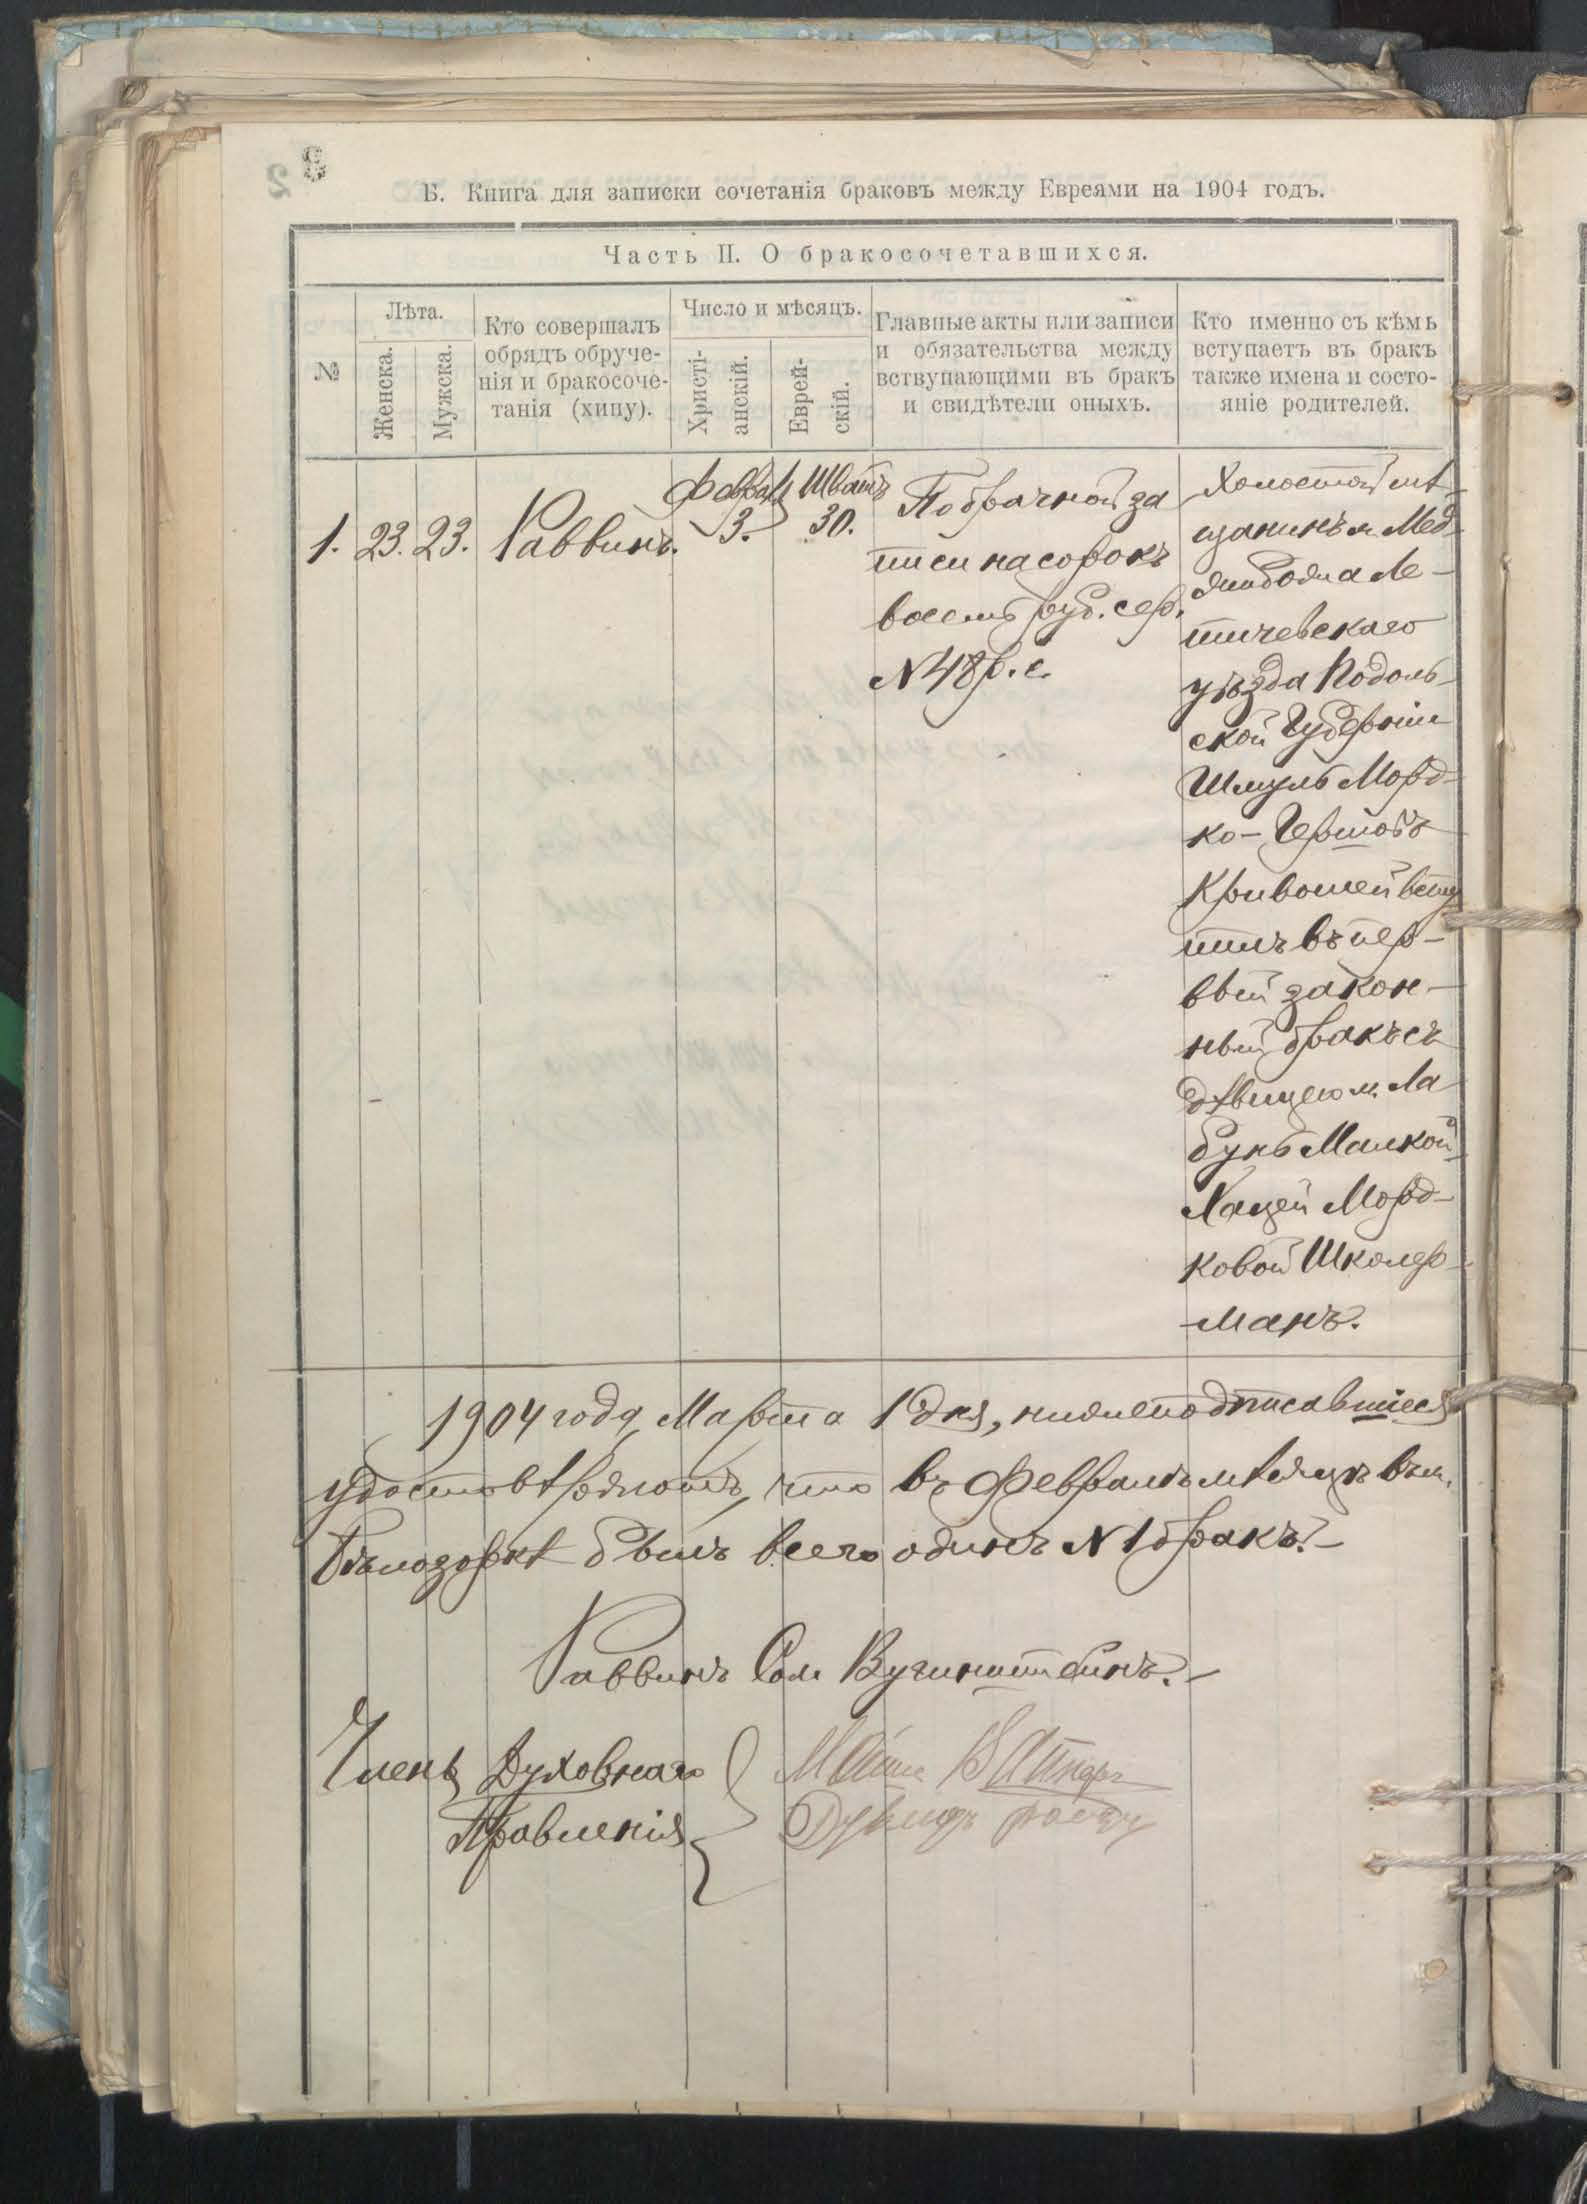 Б. Книга для записки сочетанія браковъ между Евреями на 1904 годъ.
Часть II. О бракосочетавшихся.
№
Лѣта.
Женска.
Мужска.
Кто совершалъ
обрядъ обруче-
нія и бракосоче-
танія (хипу).
Число и мѣсяцъ.
Христі-
анскій.
Еврей-
скій.
Главные акты или записи
и обязательства между
вступающими въ бракъ
и свидѣтели оныхъ.
Кто именно съ кѣмъ
вступаетъ въ бракъ
также имена и состо-
яніе родителей.
1.
23.
23.
Раввинъ.
Феврал
3.
Шватъ
30.
По брачной за
писи на сорокъ
восемь руб. сер.
N 48 р. с.
Холостой мѣ-
щанинъ м. Мед-
жибожа Ле-
тичевскаго
уѣзда Подоль-
ской Губерніи
Шмуль Морд-
ко-Гершовъ
Кривошей всту
пилъ въ пер-
вый закон-
ный бракъ съ
дѣвицею м. Ла
бунь Малкой-
Хацей Морд-
ковой Школер-
манъ.
1904 года Марта 1 дня, нижеподписавшіеся
удостовѣряютъ, что въ Февралѣ мѣсяцѣ въ м.
Бѣлозоркѣ былъ всего одинъ N 1 бракъ.-
Раввинъ Сол Вугинштейнъ.-
Члены Духовнаго
Правленія